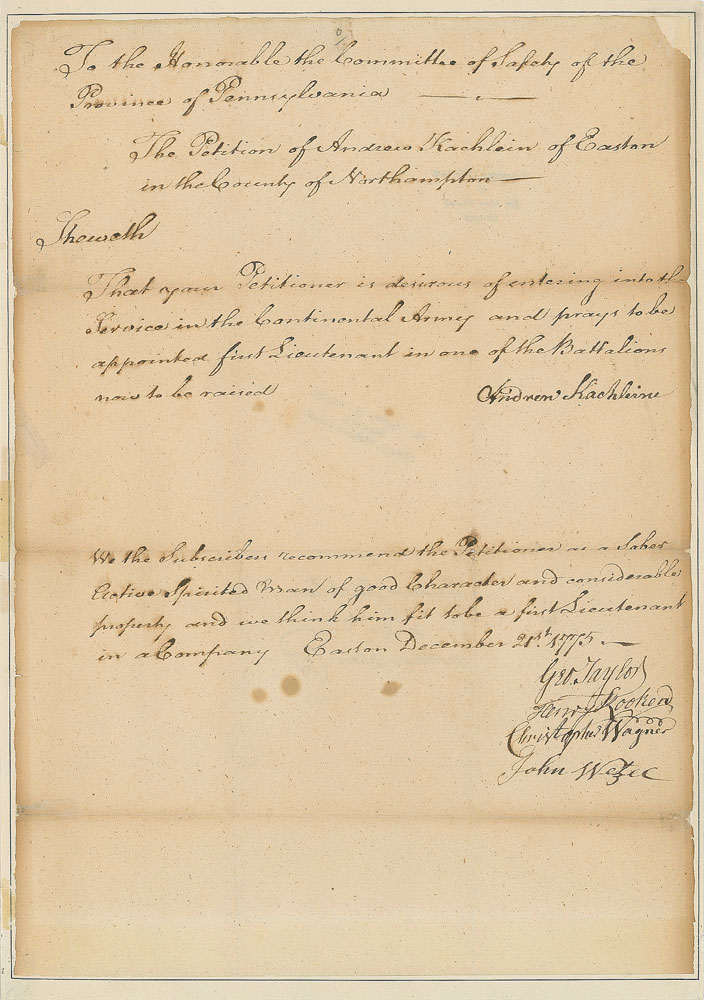 To the Honorable the Committee of Safety of the
Province of Pennsylvania
The Petition of Andrew Kachlein of Easton
in the County of Northampton
Sheweth
That your Petitioner is desirous of entering into the
Service in the Continental Army and prays to be
appointed first Lieutenant in one of the Battalions
now to be raised
Andrew Kachleine
We the Subscribers recommend the Petitioner as a Sober
Active Spirited Man of good Character and considerable
property and we think him fit to be a first Lieutenant
in a Company Easton December 21st. 1775.
Geo. Taylor
Henry
Christopher Wagner
John Wetzel